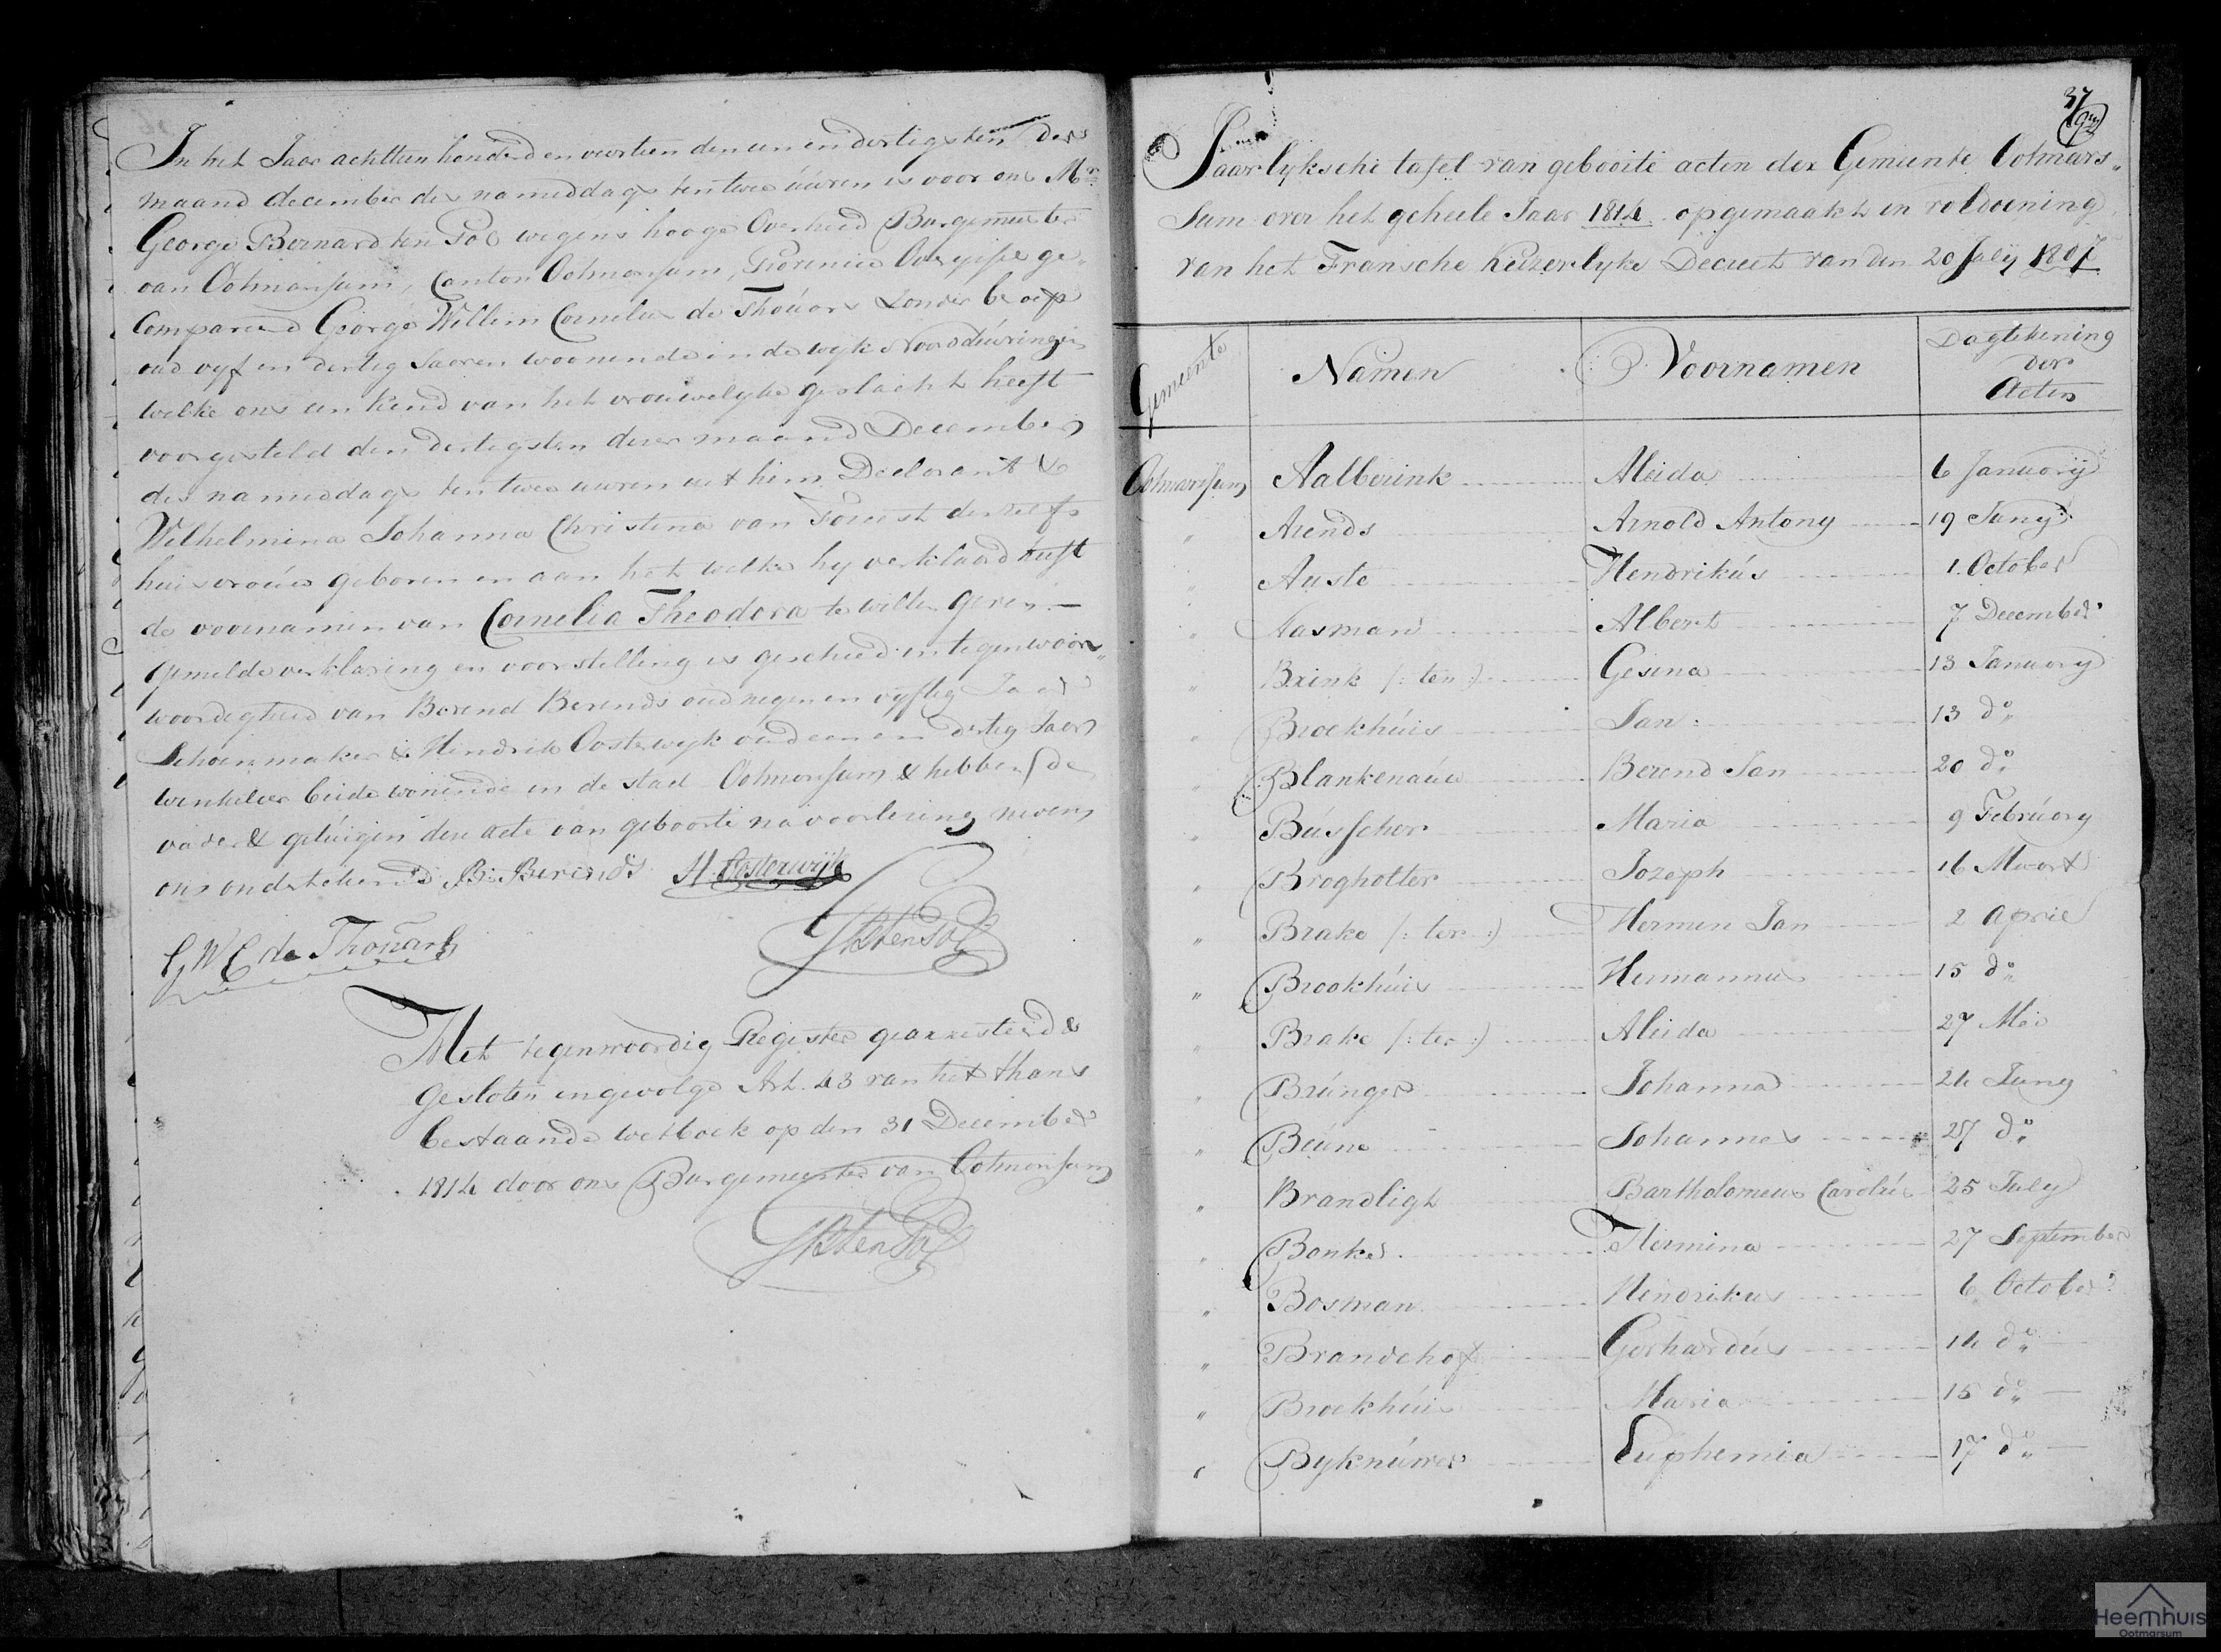 In het Jaar achttien honderd en veertien den een en dertigsten der
maand december des namiddags ten twee úúren is voor ons Mr
George Bernard ten Pol wegens hooge Overheid Burgemeester
van Ootmarssum, Canton Ootmarssum, Provincie Overijssel ge„
Compareerd George Willem Cornelis de Thoúars zonder beroep
oud vyf en dertig Jaaren woonende in de wyk Noorddeúringen
welke ons een kind van het vrouwelyke geslacht heeft
voorgesteld den dertigsten dezer maand December
des namiddags ten twee uuren uit hem Declarant &
Wilhelmina Johanna Christina van Foreest deszelfs
huisvroúw geboren en aan het welke hy verklaard heeft
de voornamen van Cornelia Theodora te willen geven. —
Gemelde verklaring en voorstelling is geschied in tegenwoor„
woordigheid van Berend Berends oud negen en vyftig Jaar
Schoenmaker & Hendrik Oosterwyk oud een en dertig Jaar
winkelier beide wonende in de stad Ootmarssum & hebben de
vader & getúigen deze acte van geboorte na voorlezing nevens
ons ondertekend B: Berends H. Oosterwijk
G W C de Thoúars
GB ten Pol
Het tegenwoordig Register gearresteerd &
Gesloten ingevolge Art. 43 van het thans
bestaande wetboek op den 31 December
1814 door ons Burgemeester van Ootmarssum
GB ten Pol
37
Jaarlyksche tafel van geboorte acten der Gemeente Ootmars„
Sum over het geheele Jaar 1814 opgemaakt in voldoening
van het Fransche Keizerlyke Decreet van den 20 July 1807
Gemeente Namen Voornamen Dagtekening
der
Acten
Ootmarssum Aalberink Aleida 6 January
„ Arends Arnold Antony 19 Juny
„ Auste Hendrikús 1. October
„ Aasman Albert 7 December
„ Brink (: ten :) Gesina 13 January
„ Broekhúis Jan 13 do„
„ Blankenaúw Berend Jan 20 do„
„ Bússcher Maria 9 Febrúary
„ Brogholter Jozeph 16 Maart
„ Brake (: ter :) Hermen Jan 2 April
„ Brookhúis Hermannus 15 do„
„ Brake (: ter :) Aleida 27 Mei
„ Brúnger Johanna 24 Juny
„ Beúne Johannes 27 do„
„ Brandligt Bartholomeus Carolús 25 July
„ Bonke Hermina 27 September
„ Bosman Hendrikus 6 October
„ Brandehof Gerhardús 14 do„ —
„ Broekhúis Maria 15 do„ —
„ Byknúwer Euphemia 17 do„ —
Heemhuis
Ootmarsum